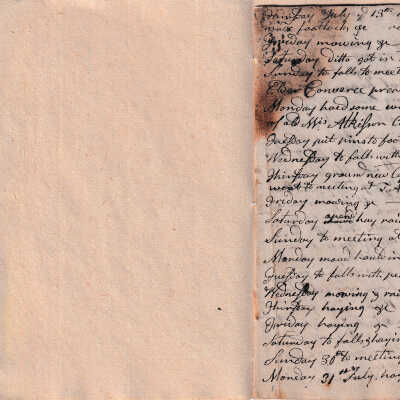 Thursday July ye 13th
wax footlocks ye
Friday mowing ye
Saturday ditto got in
Sunday to falls to meet
Elder Converce prea
Monday hoed some
of old Mrs Atkisson
Tuesday put pins to foo
Wednesday to falls with
Thursday ground new
went to meeting at
Friday mowing ye
Saturday hay rai
Sunday to meeting a
Monday
Tuesday to falls with
Wednesday mowing & rai
Thursday haying ye
Friday haying ye
Saturday to falls haying
Sunday 30th to meeting
Monday 31st July, hay